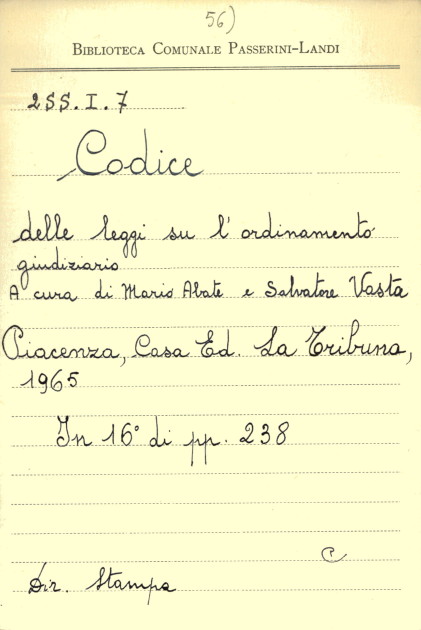 56)
BIBLIOTECA COMUNALE PASSERINI-LANDI
2SS.I.7
Codice
delle leggi su l'ordinamento
giudiziario
A cura di Mario Abate e Salvatore Vasta
Piacenza, Casa Ed. La Tribuna,
1965
In 16° di pp. 238
P
Dir. Stampa